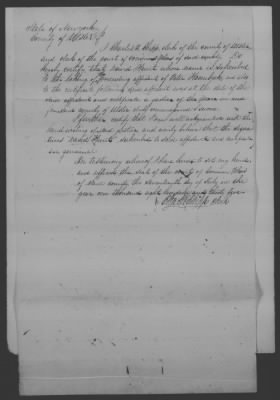 State of New york
County of Ulster
I Charles W. Chipp clerk of the county of Ulster
and clerk of the court of common pleas of said county Do
hereby certify that whose name is subscribed
to the foregoing affidavit of Peter and also
to the certificate following said affidavit was at the date of the
said affidavit and certificate a justice of the peace in and
for said county of Ulster duly commissioned & sworn
I further certify that I am well acquainted with the
hand writing of said justice and verily believe that the signa
tures subscribed to said affidavit and certificate
are genuine
In testimony whereof I have hereunto set my hand
and affixed the seal of the county of Common Pleas
of said county the seventeenth day of July in the
year one thousand eight hundred and thirty five
Chipp clerk